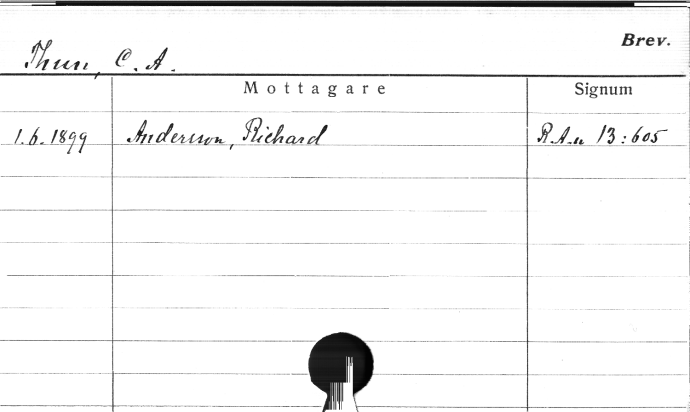 Brev.
Thun, C. A.
Mottagare Signum
1.6.1899 Andersson, Richard R.A.u 13:605